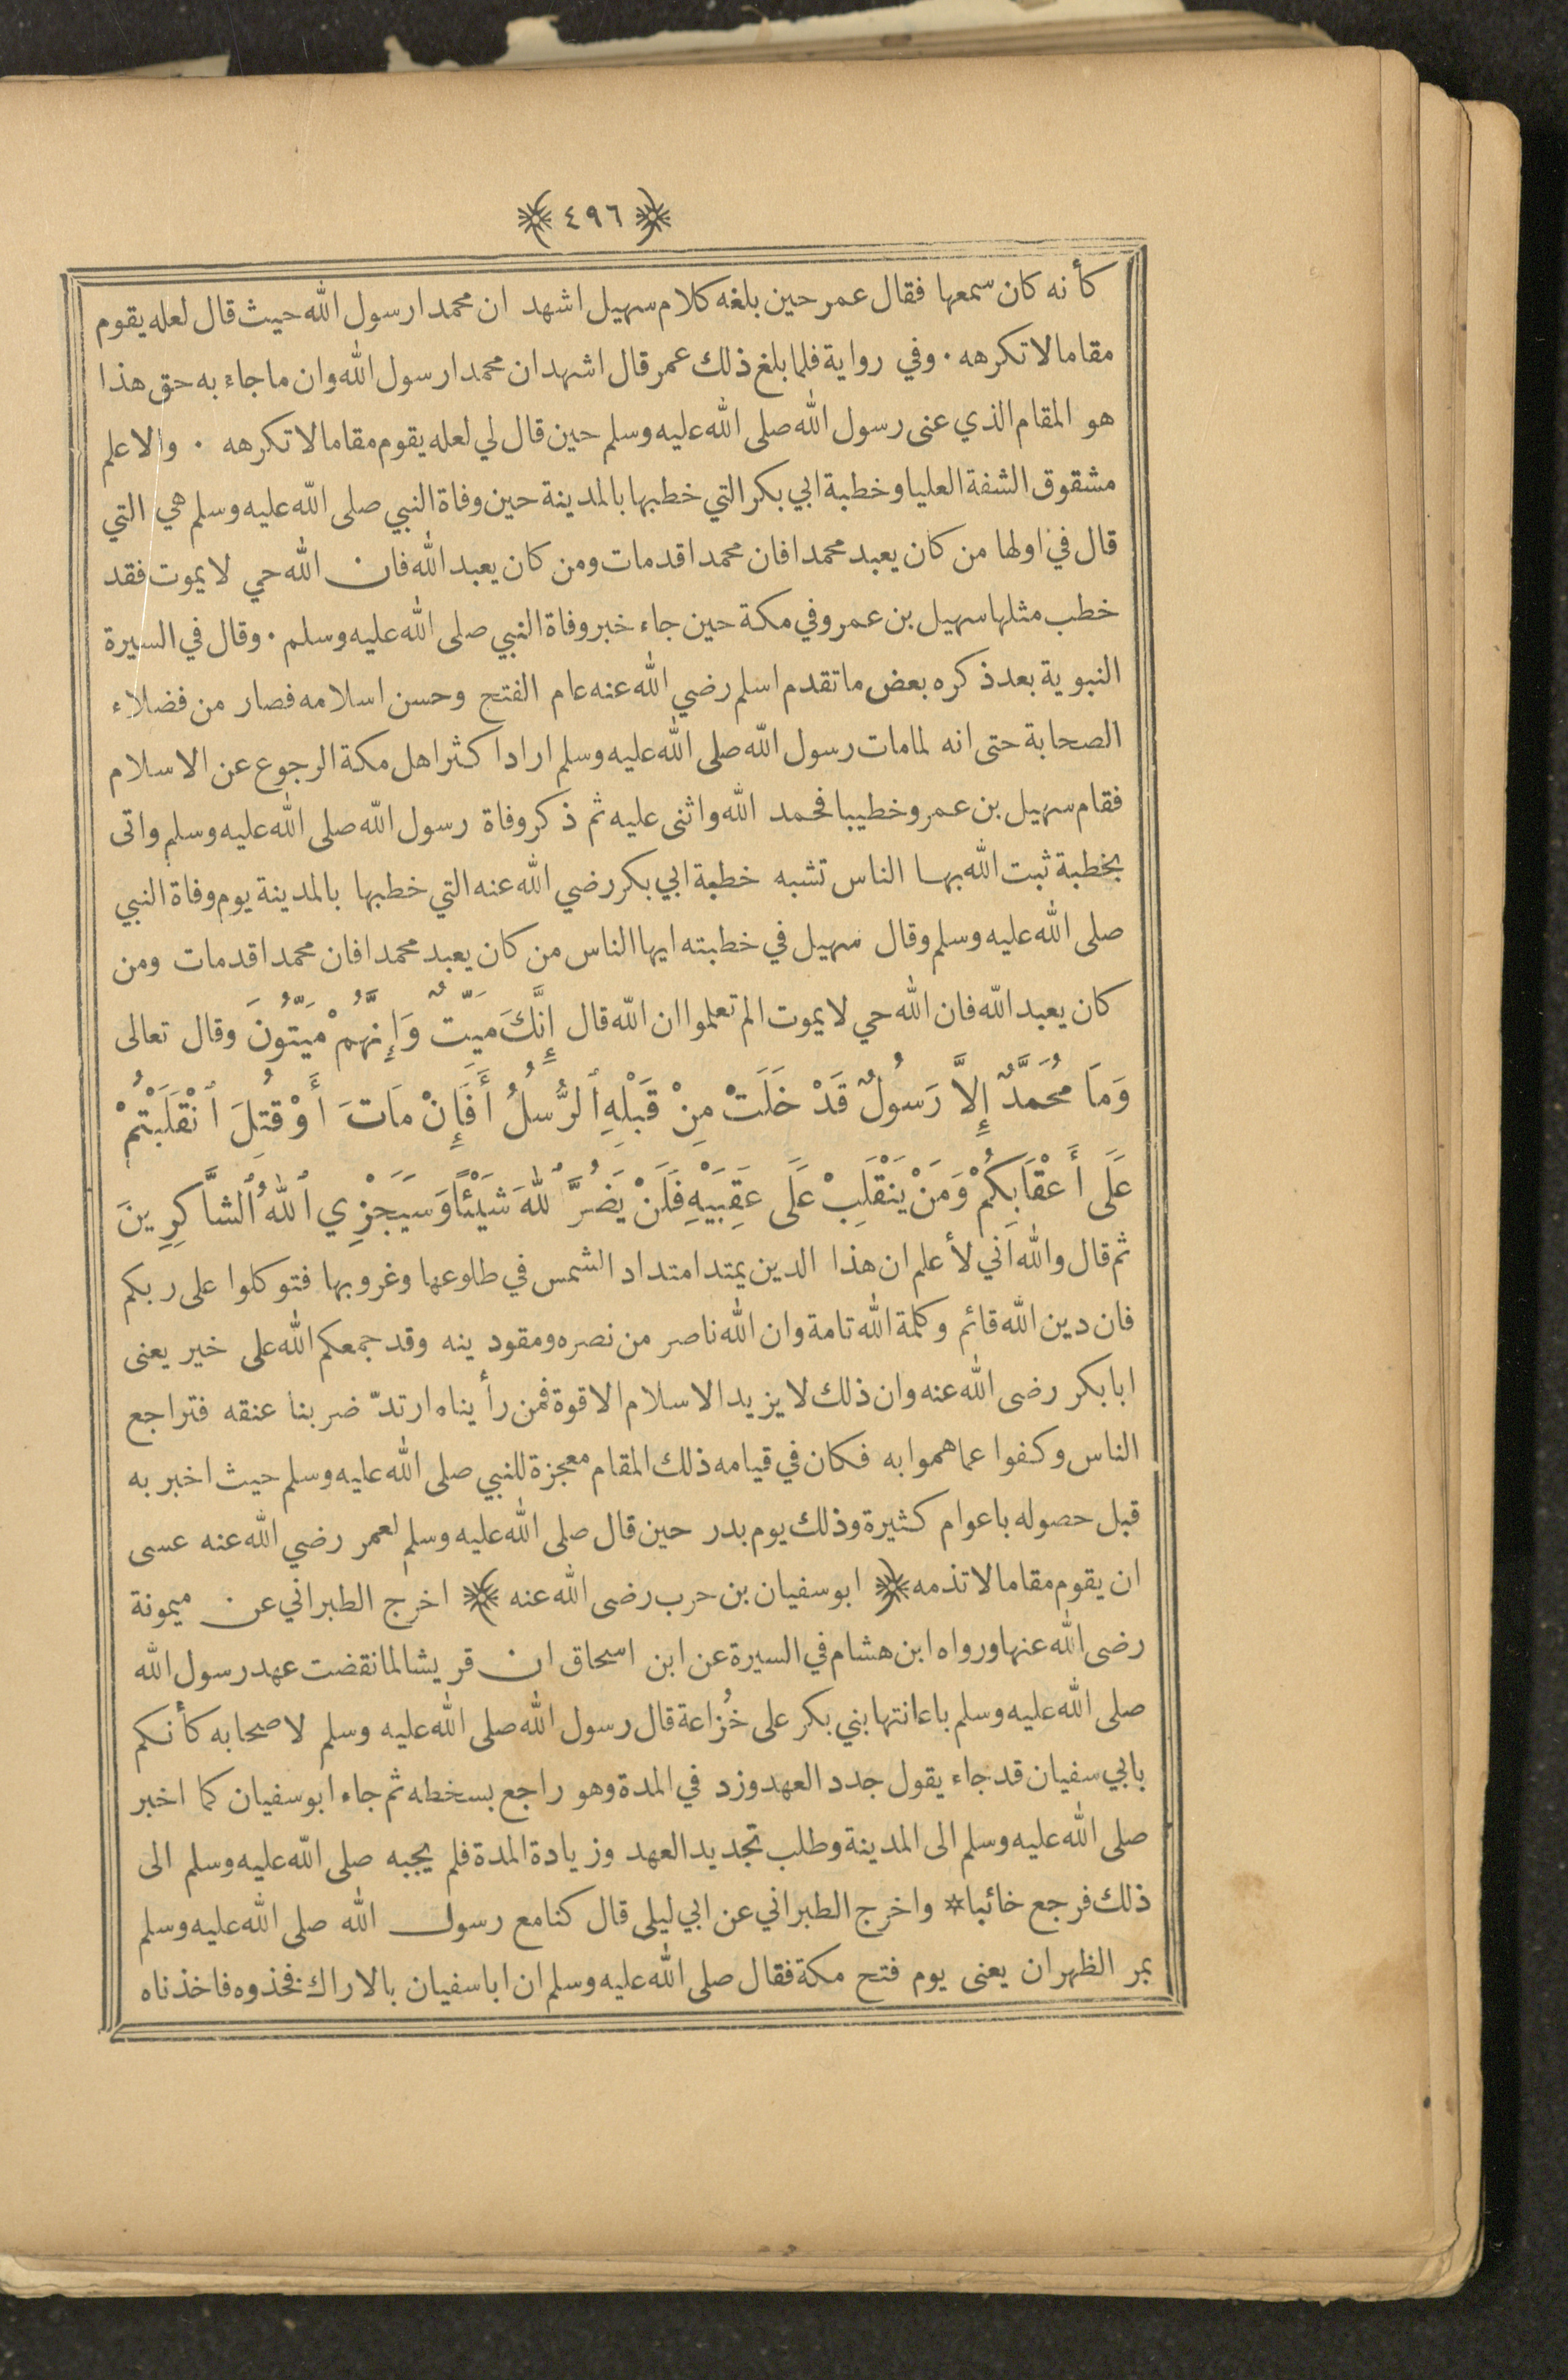 ﴿ ٤٩٦ ﴾
كأنه كان سمعها فقال عمر حين بلغه كلام سهيل اشهد ان محمدا رسول الله حيث قال لعله يقوم
مقاما لا تكرهه ٠ وفي رواية فلما بلغ ذلك عمر قال اشهد ان محمدا رسول الله وان ما جاء به حق هذا
هو المقام الذي عنى رسول الله صلى الله عليه وسلم حين قال لي لعله يقوم مقاما لا تكرهه ٠ والاعلم
مشقوق الشفة العليا وخطبة ابي بكر التي خطبها بالمدينة حين وفاة النبي صلى الله عليه وسلم هي التي
قال في اولها من كان يعبد محمدا فان محمدا قد مات ومن كان يعبد الله فان الله حي لا يموت فقد
خطب مثلها سهيل بن عمرو في مكة حين جاء خبر وفاة النبي صلى الله عليه وسلم ٠ وقال في السيرة
النبوية بعد ذكره بعض ما تقدم اسلم رضي الله عنه عام الفتح وحسن اسلامه فصار من فضلاء
الصحابة حتى انه لما مات رسول الله صلى الله عليه وسلم اراد اكثر اهل مكة الرجوع عن الاسلام
فقام سهيل بن عمرو خطيبا فحمد الله واثنى عليه ثم ذكر وفاة رسول الله صلى الله عليه وسلم واتى
بخطبة ثبت الله بها الناس تشبه خطبة ابي بكر رضي الله عنه التي خطبها بالمدينة يوم وفاة النبي
صلى الله عليه وسلم وقال سهيل في خطبته ايها الناس من كان يعبد محمدا فان محمدا قد مات ومن
كان يعبد الله فان الله حي لا يموت الم تعلموا ان الله قال إِنَّكَ مَيِّتٌ وَإِنَّهُمْ مَيِّتُونَ وقال تعالى
وَمَا مُحَمَّدٌ إِلاَّ رَسُولٌ قَدْ خَلَتْ مِنْ قَبْلِهِ ٱلرُّسُلُ أَفَإِنْ مَاتَ أَوْ قُتِلَ ٱنْقَلَبْتُمْ
عَلَى أَعْقَابِكُمْ وَمَنْ يَنْقَلِبْ عَلَى عَقِبَيْهِ فَلَنْ يَضُرَّ ٱللهَ شَيْئًا وَسَيَجْزِي ٱللهُ ٱلشَّاكِرِينَ
ثم قال والله اني لأعلم ان هذا الدين يمتد امتداد الشمس في طلوعها وغروبها فتوكلوا على ربكم
فان دين الله قائم وكلمة الله تامة وان الله ناصر من نصره ومقو دينه وقد جمعكم الله على خير يعنى
ابا بكر رضى الله عنه وان ذلك لا يزيد الاسلام الا قوة فمن رأيناه ارتدّ ضربنا عنقه فتراجع
الناس وكفوا عما هموا به فكان في قيامه ذلك المقام معجزة للنبي صلى الله عليه وسلم حيث اخبر به
قبل حصوله باعوام كثيرة وذلك يوم بدر حين قال صلى الله عليه وسلم لعمر رضي الله عنه عسى
ان يقوم مقاما لا تذمه ﴿ ابو سفيان بن حرب رضى الله عنه ﴾ اخرج الطبراني عن ميمونة
رضى الله عنها ورواه ابن هشام في السيرة عن ابن اسحاق ان قريشا لما نقضت عهد رسول الله
صلى الله عليه وسلم باعانتها بني بكر على خُزاعة قال رسول الله صلى الله عليه وسلم لاصحابه كأنكم
بابي سفيان قد جاء يقول جدد العهد وزد في المدة وهو راجع بسخطه ثم جاء ابو سفيان كما اخبر
صلى الله عليه وسلم الى المدينة وطلب تجديد العهد وزيادة المدة فلم يجبه صلى الله عليه وسلم الى
ذلك فرجع خائبا * واخرج الطبراني عن ابي ليلى قال كنا مع رسول الله صلى الله عليه وسلم
بمر الظهران يعنى يوم فتح مكة فقال صلى الله عليه وسلم ان ابا سفيان بالاراك فخذوه فاخذناه